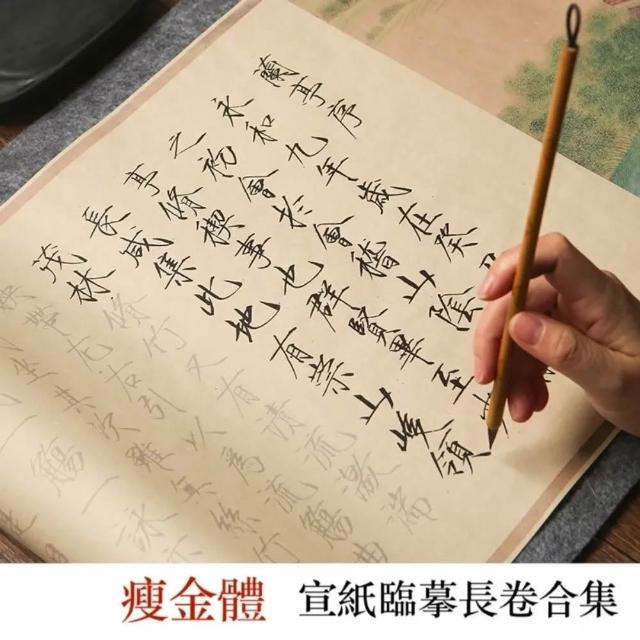 蘭亭序
永和九年歲在癸
之初會於會稽山陰
亭脩禊事也群賢畢至
長咸集此地有崇山峻領
茂林脩竹又有清流激湍
映帶左右引以為流觴曲
坐其次雖無絲竹
一觴一詠亦
瘦金體 宣紙臨摹長卷合集